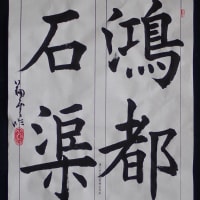 鴻都
石渠